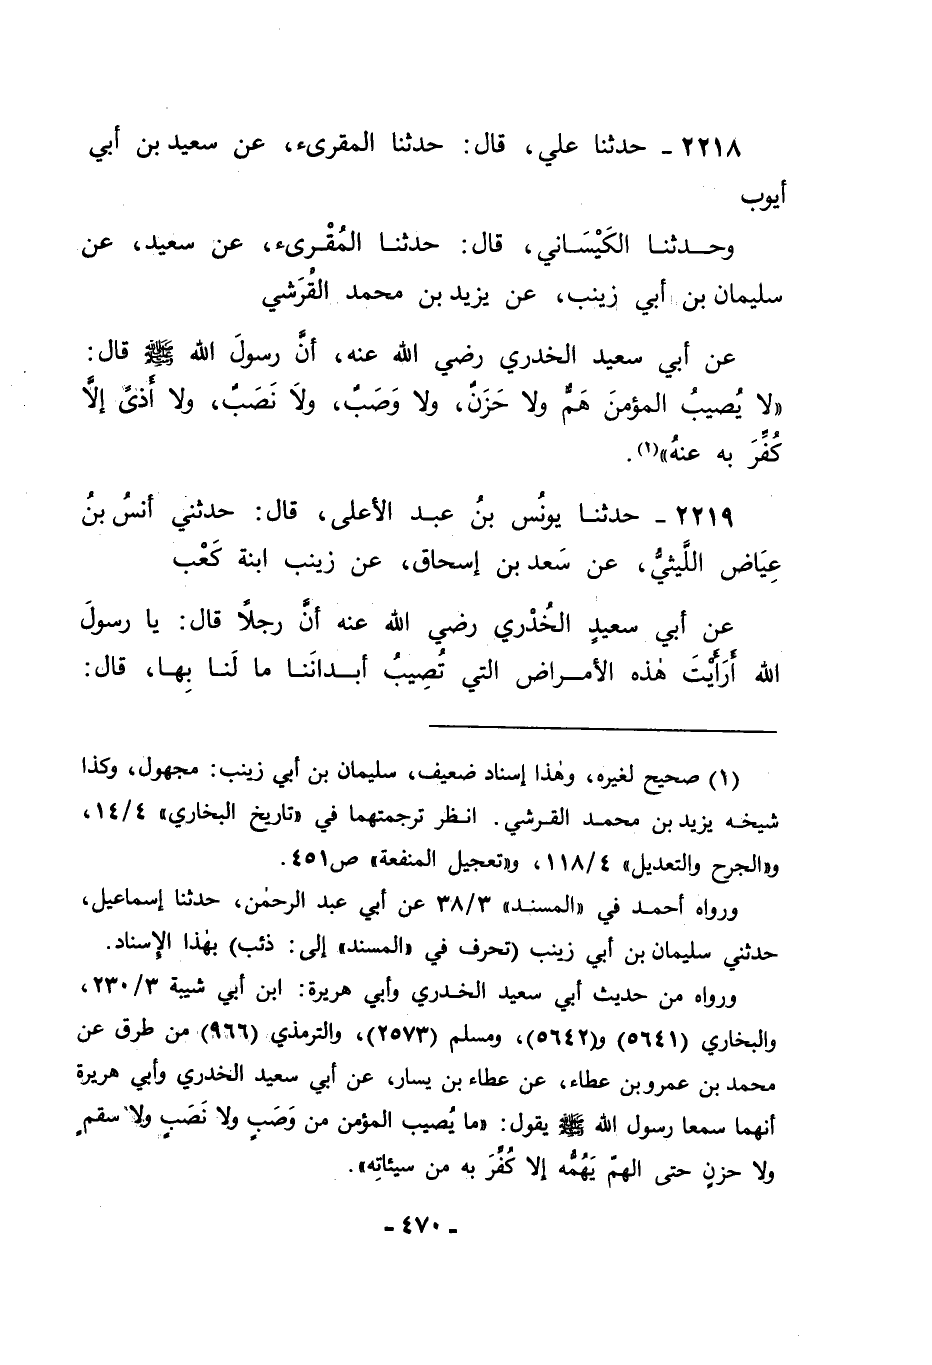 ٢٢١٨ ـ حدثنا علي، قال: حدثنا المقرىء، عن سعيد بن أبي
أيوب
وحـدثنـا الكَيْسَـاني، قال: حدثنـا المُقْـرىء، عن سعيد، عن
سليمان بن أبي زينب، عن يزيد بن محمد القُرَشي
عن أبي سعيد الخدري رضي الله عنه، أنَّ رسولَ الله ﷺ قال:
«لا يُصيبُ المؤمنَ هَمٌّ ولا حَزَنٌ، ولا وَصَبٌ، ولاَ نَصَبٌ، ولا أَذىً إلَّا
كُفِّرَ به عنهُ»(١).
٢٢١٩ ـ حدثنـا يونُس بنُ عبـد الأعلى، قال: حدثني أنسُ بنُ
عِيَاض اللَّيثيُّ، عن سَعد بن إسحاق، عن زينب ابنة كَعْب
عن أبي سعيدٍ الخُدْري رضي الله عنه أنَّ رجلًا قال: يا رسولَ
الله أَرَأَيْتَ هٰذه الأمـراض التي تُصِيبُ أبـدانَنـا ما لَنـا بِهـا، قال:
(١) صحيح لغيره، وهٰذا إسناد ضعيف، سليمان بن أبي زينب: مجهول، وكذا
شيخـه يزيد بن محمـد القـرشي. انـظر ترجمتهما في «تاريخ البخاري» ١٤/٤،
و«الجرح والتعديل» ١١٨/٤، و«تعجيل المنفعة» ص٤٥١.
ورواه أحمـد في «المسنـد» ٣٨/٣ عن أبي عبد الرحمٰن، حدثنا إسماعيل،
حدثني سليمان بن أبي زينب (تحرف في «المسند» إلى: ذئب) بهٰذا الإسناد.
ورواه من حديث أبي سعيد الخـدري وأبي هريرة: ابن أبي شيبة ٢٣٠/٣،
والبخاري (٥٦٤١) و(٥٦٤٢)، ومسلم (٢٥٧٣)، والترمذي (٩٦٦) من طرق عن
محمد بن عمرو بن عطاء، عن عطاء بن يسار، عن أبي سعيد الخدري وأبي هريرة
أنهما سمعا رسول الله ﷺ يقول: «ما يُصيب المؤمن من وَصَبٍ ولا نَصَبٍ ولا سقمٍ
ولا حزنٍ حتى الهمّ يَهُمُّه إلا كُفِّرَ به من سيئاتِه».
ـ ٤٧٠ ـ